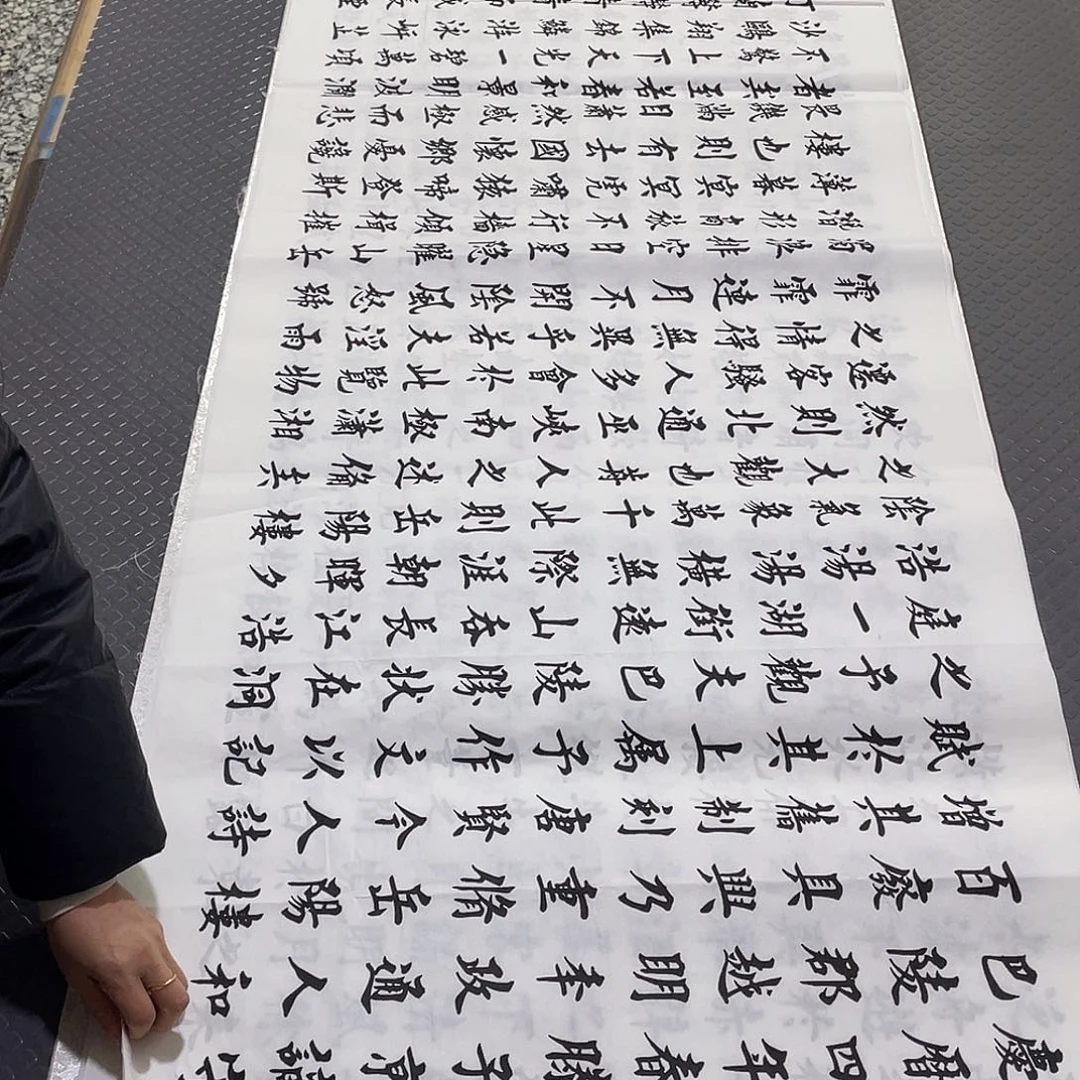 慶曆四年春滕子京謫守
巴陵郡越明年政通人和
百廢具興乃重脩岳陽樓
增其舊制刻唐賢今人詩
賦於其上属予作文以記
之予觀夫巴陵勝狀在洞
庭一湖銜遠山吞長江浩
浩湯湯橫無際涯朝暉夕
陰氣象萬千此則岳陽樓
之大觀也前人之述備矣
然則北通巫峽南極瀟湘
遷客騷人多會於此覽物
之情得無異乎若夫淫雨
霏霏連月不開陰風怒號
濁浪排空日星隐曜山岳
潛形商旅不行檣傾楫摧
薄暮冥冥虎嘯猿啼登斯
樓也則有去國懷鄉憂讒
畏譏滿目蕭然感極而悲
者矣至若春和景明波瀾
不驚上下天光一碧萬頃
沙鷗翔集錦鱗游泳岸芷